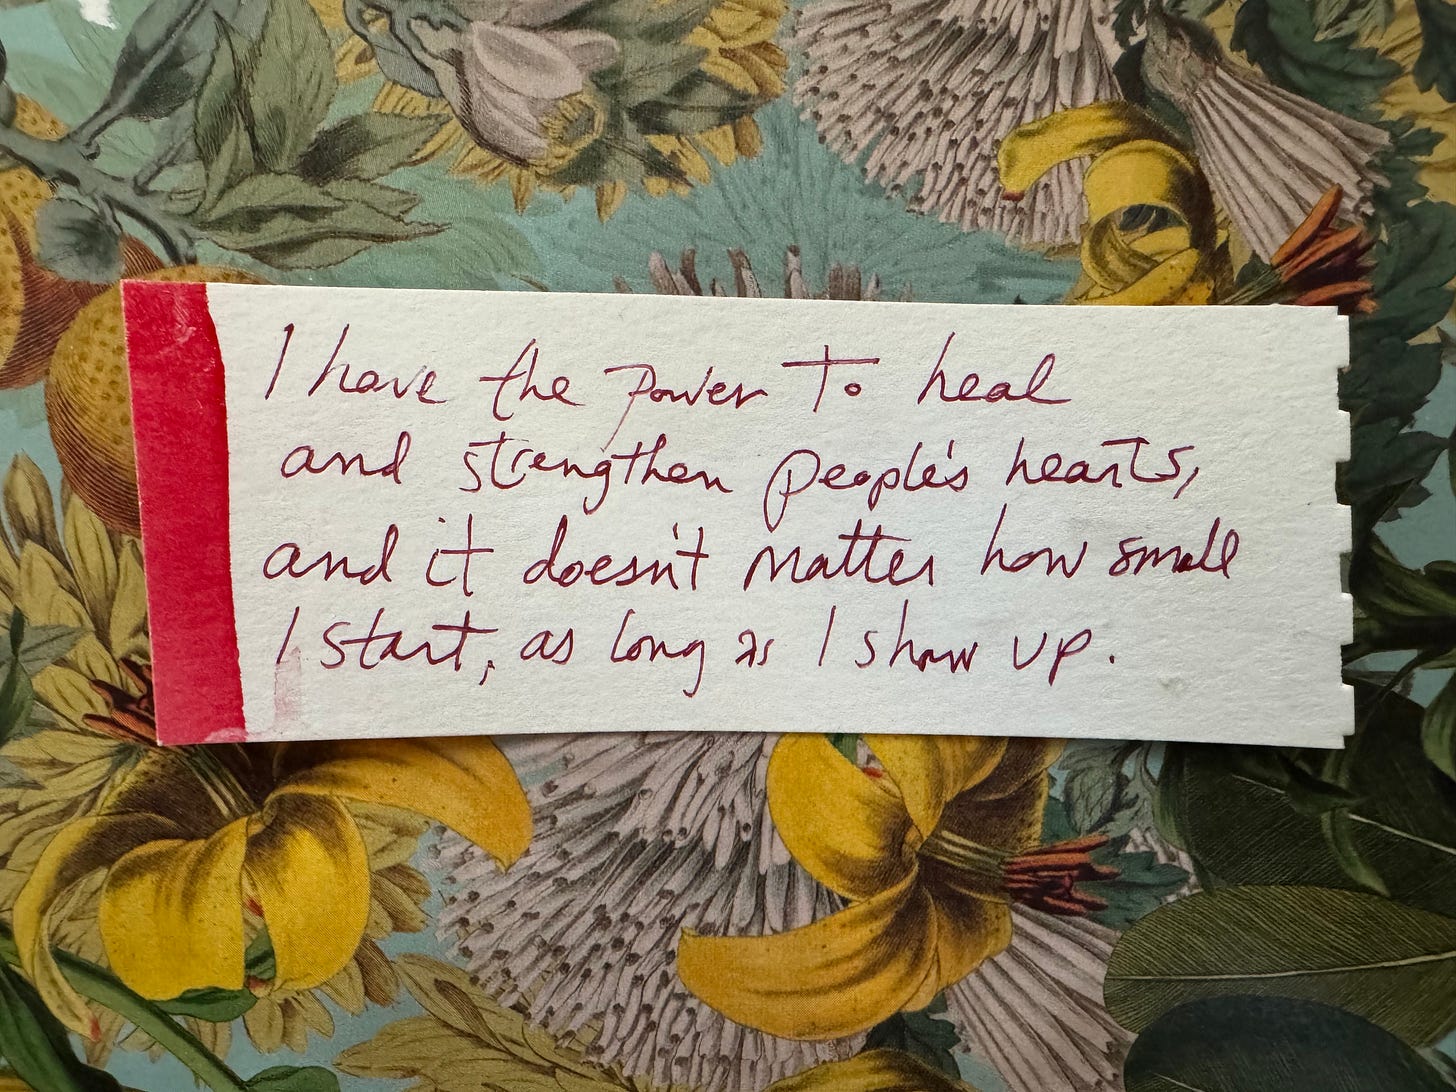 I have the power to heal
and strengthen people's hearts,
and it doesn't matter how small
I start, as long as I show up.